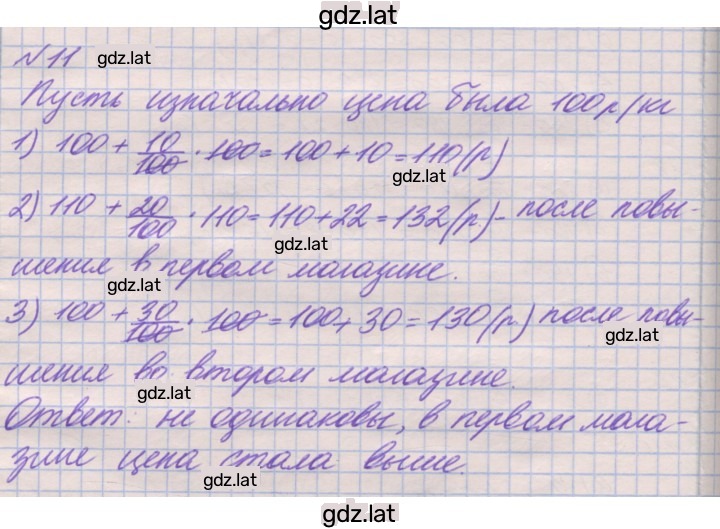 gdz.latt
№11 gdz.lat
Пусть изначально цена была 100 р/кг
1) 100 + 10/100 · 100 = 100 + 10 = 110 (р)
gdz.lat
2) 110 + 20/100 · 110 = 110 + 22 = 132 (р) - после повы-
gdz.lat
шения в первом магазине.
gdz.lat
3) 100 + 30/100 · 100 = 100 + 30 = 130 (р) после повы-
gdz.lat
шения во втором магазине.
gdz.lat
Ответ: не одинаковы, в первом мага-
зине цена стала выше.
gdz.lat
gdz.lat